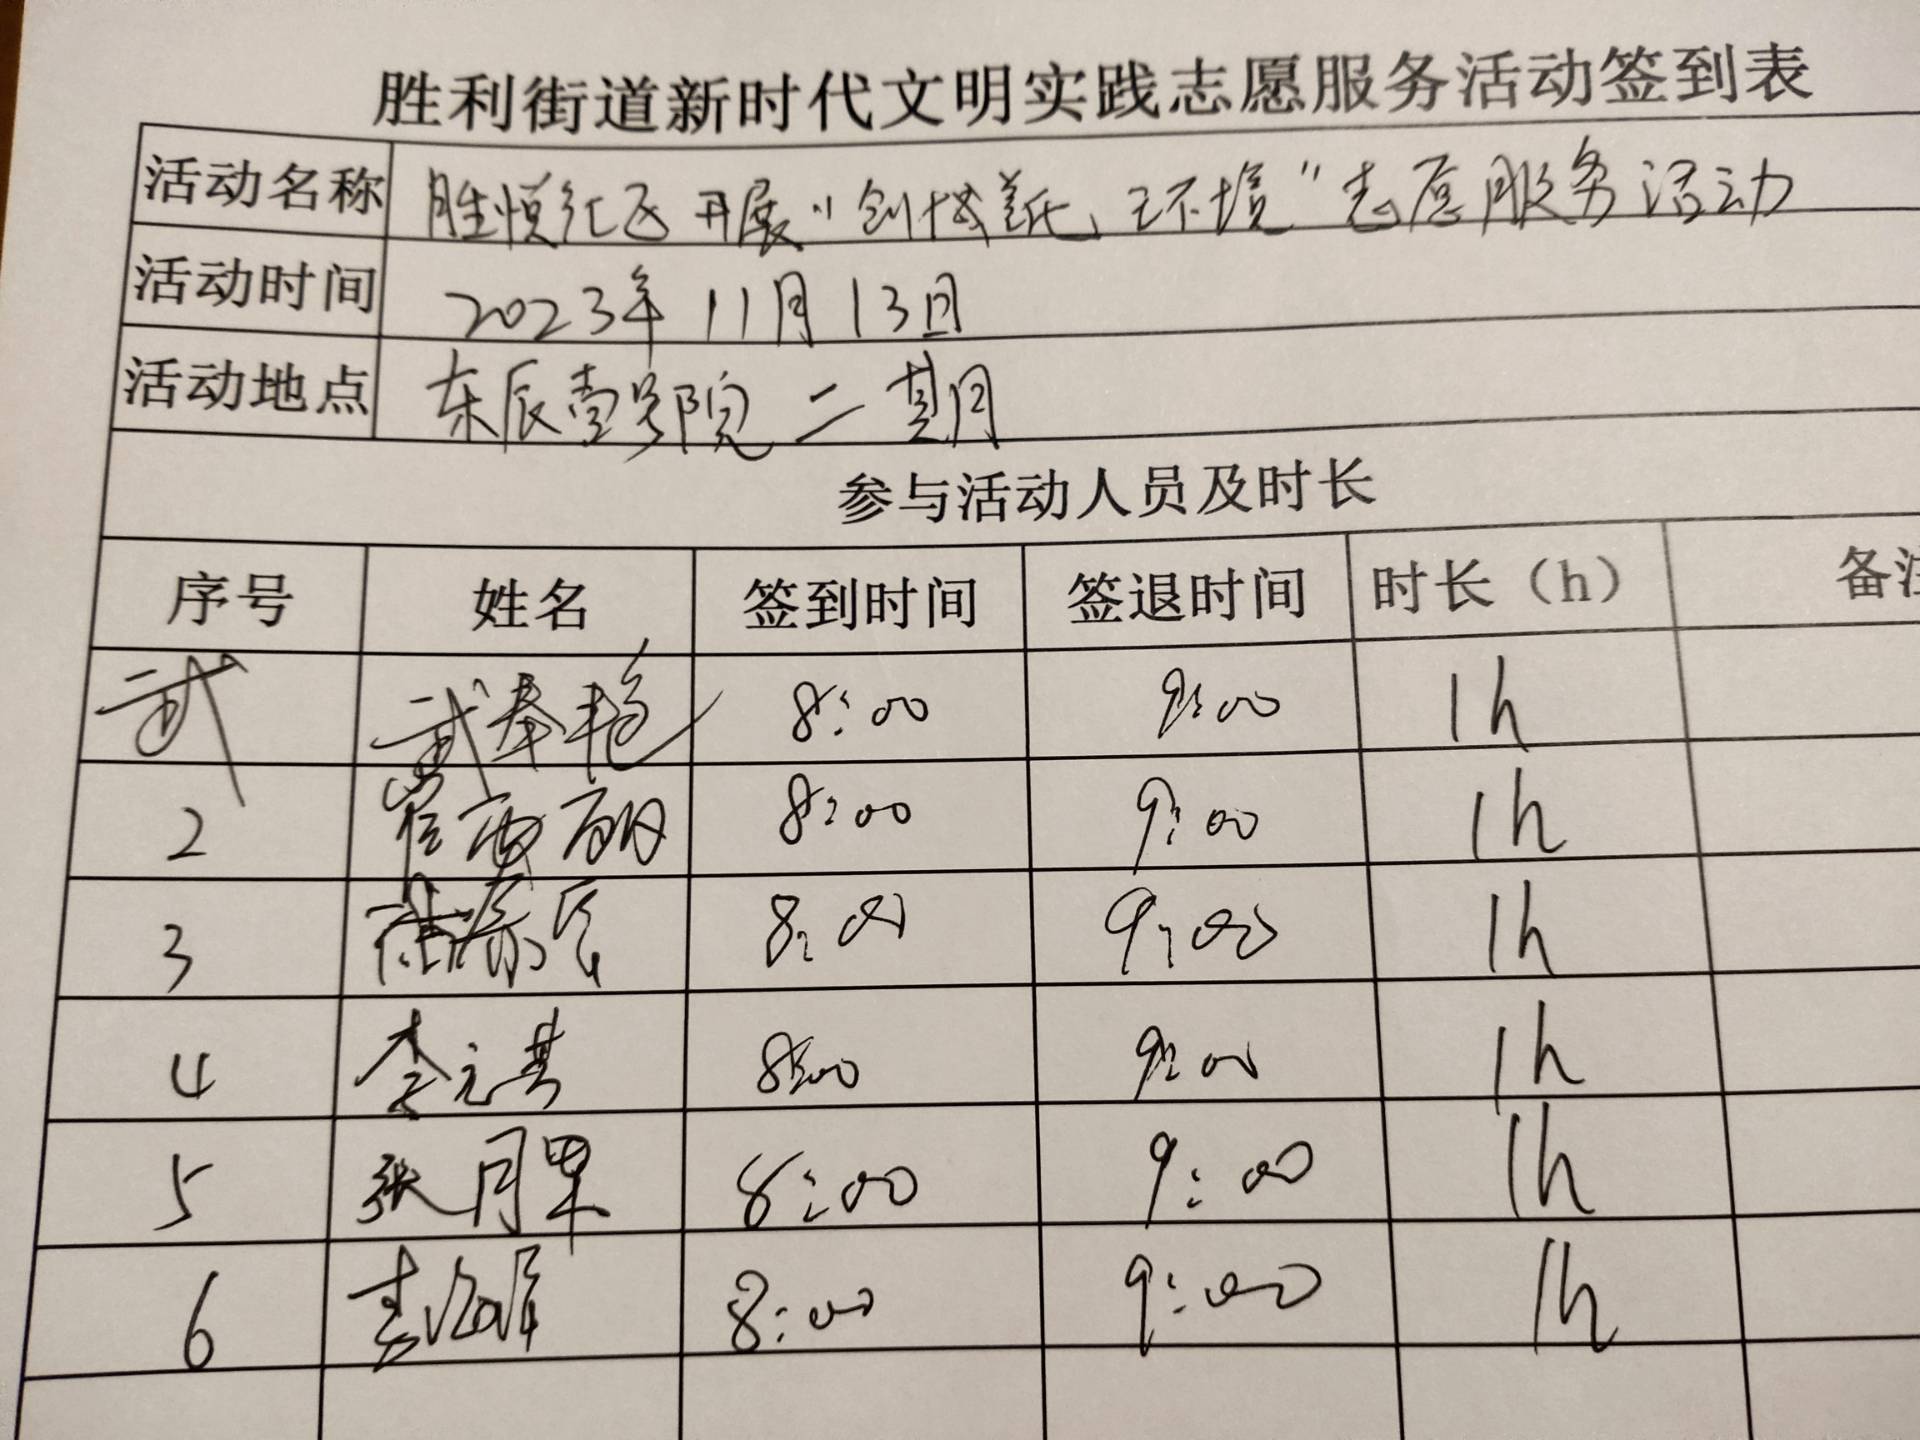 胜利街道新时代文明实践志愿服务活动签到表
活动名称 胜悦汇区开展“创城 环境”志愿服务活动
活动时间 2023年11月13日
活动地点 东辰壹号院二期
参与活动人员及时长
序号 姓名 签到时间 签退时间 时长(h) 备注
武 武春艳 8:00 9:00 1h
2 8:00 9:00 1h
3 8:00 9:00 1h
4 李元其 8:00 9:00 1h
5 张月 8:00 9:00 1h
6 8:00 9:00 1h